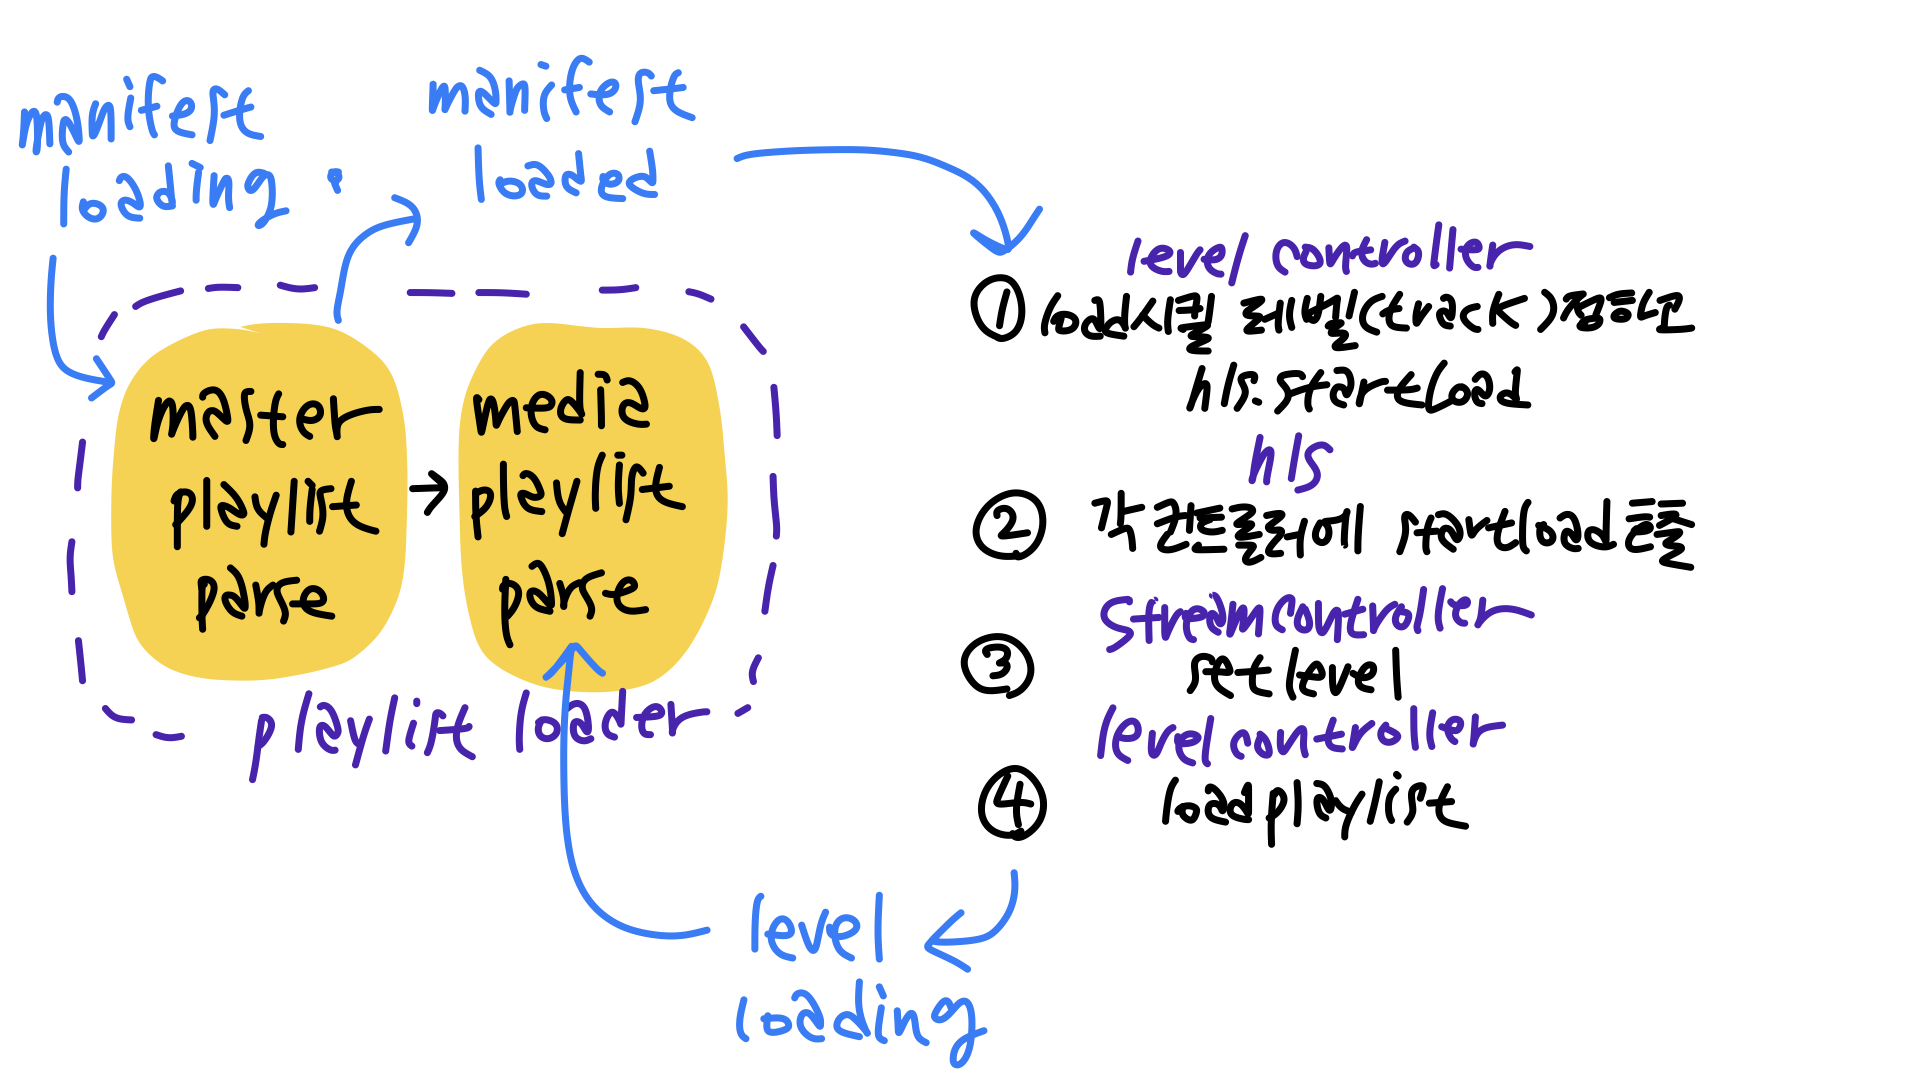 manifest
loading
manifest
loaded
master
playlist
parse
media
playlist
parse
playlist loader
level controller
① load시킬 레벨(track)정하고
hls.startLoad
hls
② 각 컨트롤러에 startload 호출
Streamcontroller
③ set level
level controller
④ load playlist
level
loading